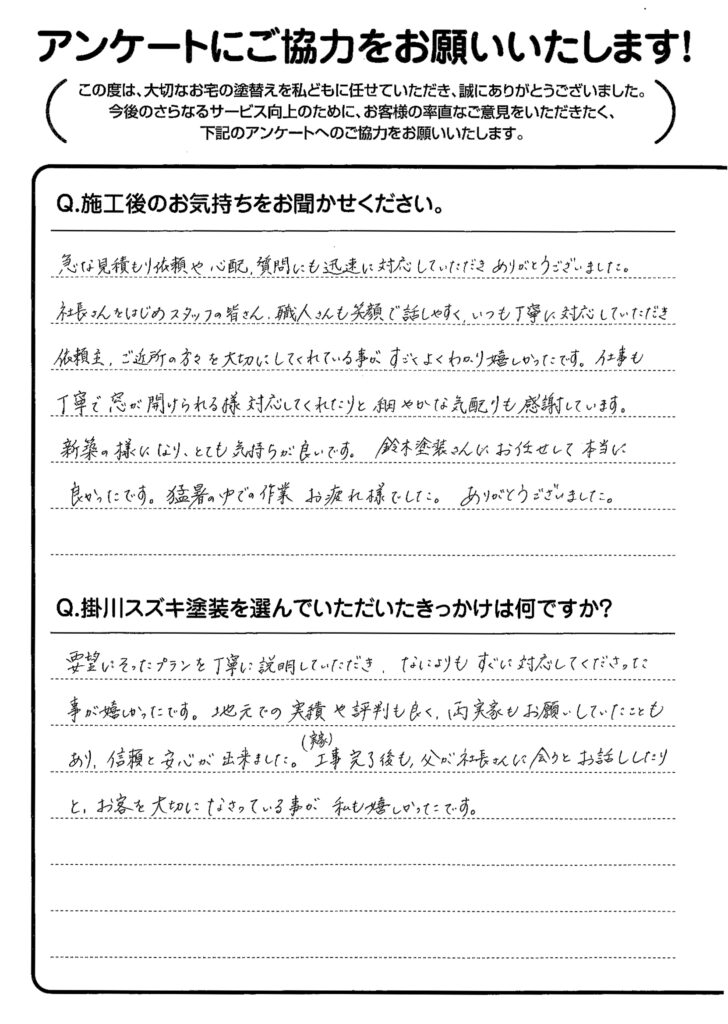 アンケートにご協力をお願いいたします!
この度は、大切なお宅の塗替えを私どもに任せていただき、誠にありがとうございました。
今後のさらなるサービス向上のために、お客様の率直なご意見をいただきたく、
下記のアンケートへのご協力をお願いいたします。
Q.施工後のお気持ちをお聞かせください。
急な見積もり依頼や心配、質問にも迅速に対応していただきありがとうございました。
社長さんをはじめスタッフの皆さん、職人さんも笑顔で話しやすく、いつも丁寧に対応していただき
依頼主、ご近所の方々を大切にしてくれている事がすごくよくわかり嬉しかったです。仕事も
丁寧で窓が開けられる様対応してくれたりと細やかな気配りも感謝しています。
新築の様になり、とても気持ちが良いです。 鈴木塗装さんにお任せして本当に
良かったです。猛暑の中での作業 お疲れ様でした。 ありがとうございました。
Q.掛川スズキ塗装を選んでいただいたきっかけは何ですか?
要望にそったプランを丁寧に説明していただき、なによりもすぐに対応してくださった
事が嬉しかったです。地元での実績や評判も良く、両実家もお願いしていたことも
あり、信頼と安心が出来ました。(実家)工事完了後も、父が社長さんに会うとお話ししたり
と、お客を大切になさっている事が私も嬉しかったです。